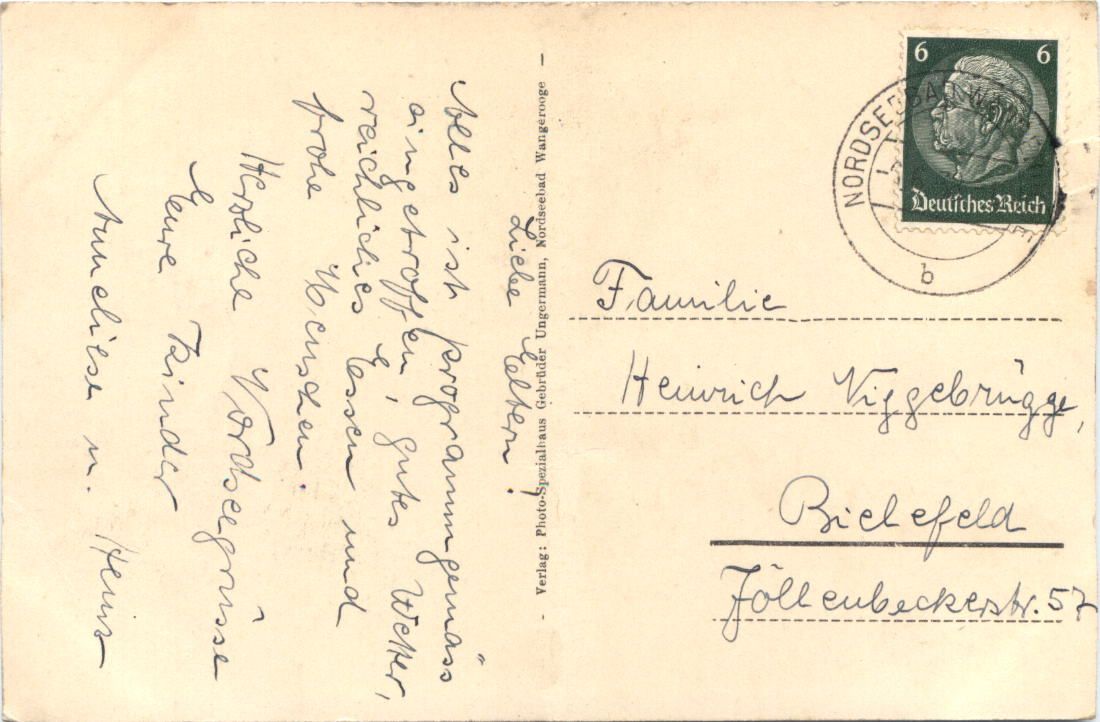 Liebe Eltern!
Alles ist programmgemäss
eingetroffen, gutes Wetter,
reichliches Essen und
frohe Menschen.
Herzliche Nordseegrüsse
Eure Kinder
Anneliese u. Heinz
- Verlag: Photo-Spezialhaus Gebrüder Ungermann, Nordseebad Wangerooge -
6 6
Deutsches Reich
NORDSEEBAD
b
Familie
Heinrich Niggebrügge,
Bielefeld
Jöllenbeckerstr. 57